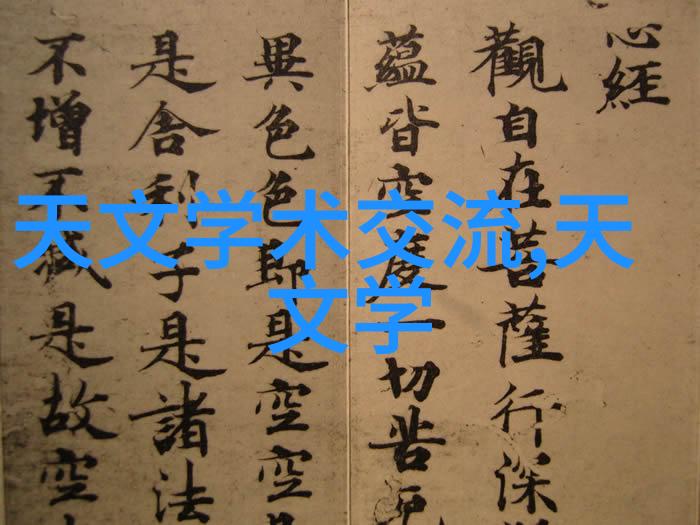 天文学术交流,天
文学
心經
觀自在菩薩行深
蘊皆空度一切苦厄
異色色即是空空
是舍利子是諸法
不增不減是故空